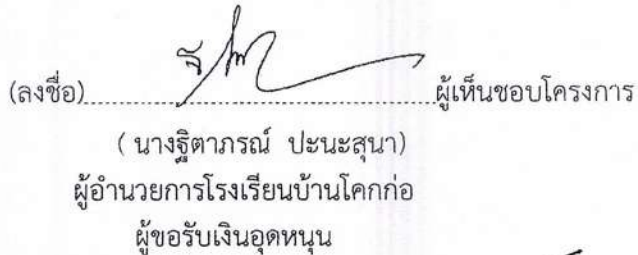 (ลงชื่อ)............................................ผู้เห็นชอบโครงการ
( นางฐิตาภรณ์ ปะนะสุนา)
ผู้อำนวยการโรงเรียนบ้านโคกก่อ
ผู้ขอรับเงินอุดหนุน